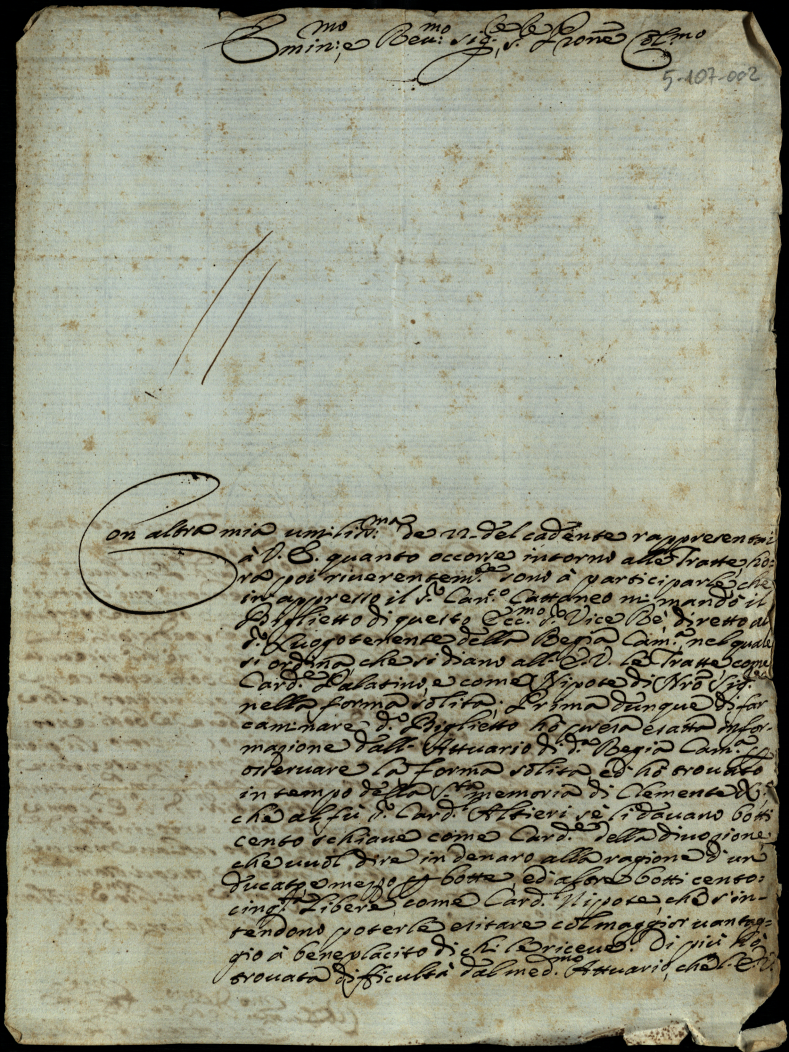 Emin:mo e Reu:mo sig:re, s:r Prone Col:mo
5-107-002
Con altra mia umiliss:ma de 22 del cadente rappresentai
à V. E. quanto occorse intorno alle Tratte, ho:
ra poi riuerentem:te sono à participarle, che
in appresso il s:r Can:co Cattaneo mi mandò il
Biglietto di questo Ecc:mo s:r Vice Rè, diretto al
s:r Luogotenente della Regia Cam:ra nel quale
si ordina, che si diano all' E. V. le Tratte come
Card:le Palatino, e come Nipote di Nrõ Sig:re
nella forma solita; Prima dunque di far
caminare d:o Biglietto hò presa esatta infor-
mazione dall' Attuario di d:a Regia Cam:ra p
osseruare la forma solita ed hò trouato
in tempo della S:ta memoria di Clemente X:
che al fù s:r Card:l Altieri se li dauano botti
cento schiaue come Card:le della diuozione,
che vuol dire in denaro alla ragione d'un
ducato, e mezzo p botte, ed altre botti cento:
cinq:ta Libere, come Card:l Nipote che s'in-
tendono poterle esitare col maggior vantag-
gio à beneplacito di chi le riceue. Di più hò
trouata difficultà dal med:mo Attuario, che l' E. V.